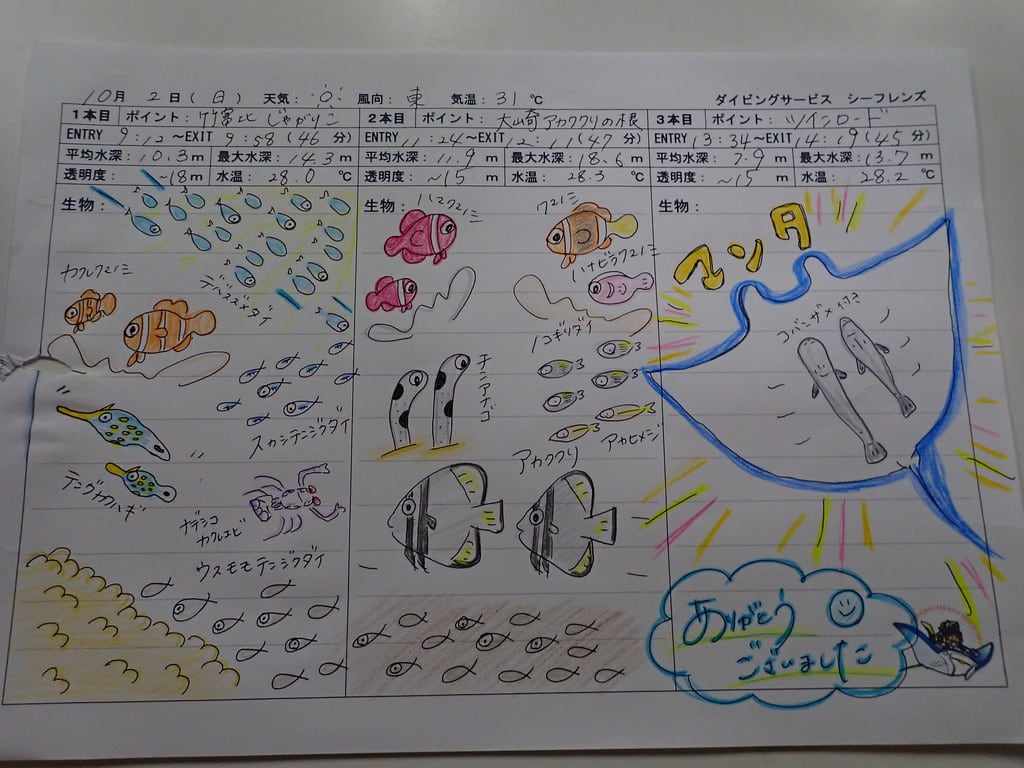 10月 2日(日) 天気: 風向: 東 気温: 31℃ ダイビングサービス シーフレンズ
1本目 ポイント: 竹富北 じゃがりこ
ENTRY 9:12~EXIT 9:58(46分)
平均水深: 10.3m 最大水深: 14.3m
透明度: ~18m 水温: 28.0℃
生物:
デバスズメダイ
カクレクマノミ
スカシテンジクダイ
テングカワハギ
ナデシコ
カクレエビ
ウスモモテンジクダイ
2本目 ポイント: 大崎アカククリの根
ENTRY 11:24~EXIT 12:11(47分)
平均水深: 11.9m 最大水深: 18.6m
透明度: ~15m 水温: 28.3℃
生物:
ハマクマノミ
クマノミ
ハナビラクマノミ
ノコギリダイ
チンアナゴ
アカヒメジ
アカククリ
3本目 ポイント: ツインロード
ENTRY 13:34~EXIT 14:19(45分)
平均水深: 7.9m 最大水深: 13.7m
透明度: ~15m 水温: 28.2℃
生物:
マンタ
コバンザメ付き
ありがとう
ございました